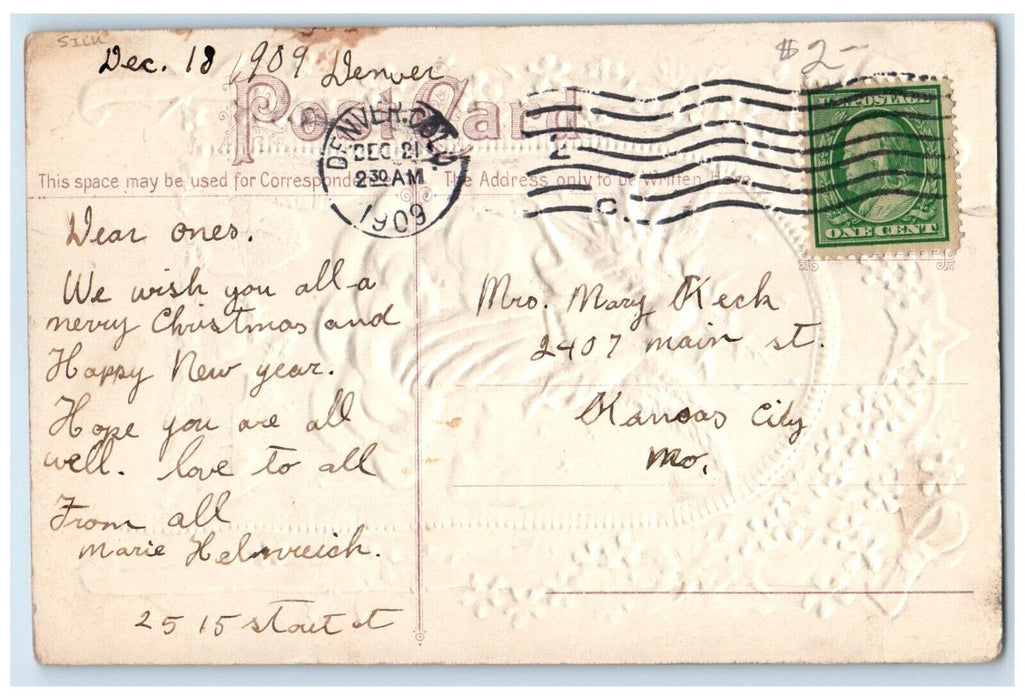 SILK
Dec. 18, 1909 Denver
$2-
Post Card
DENVER, COLO.
DEC 21
2 30 AM
1909
2
C.
U.S. POSTAGE
ONE CENT
This space may be used for Correspondence The Address only to be Written Here
Dear ones.
We wish you all a
merry Christmas and
Happy New year.
Hope you are all
well. love to all
From all
Marie Helmreich.
2515 stout st
Mrs. Mary Keck
2407 main st.
Kansas City
Mo.